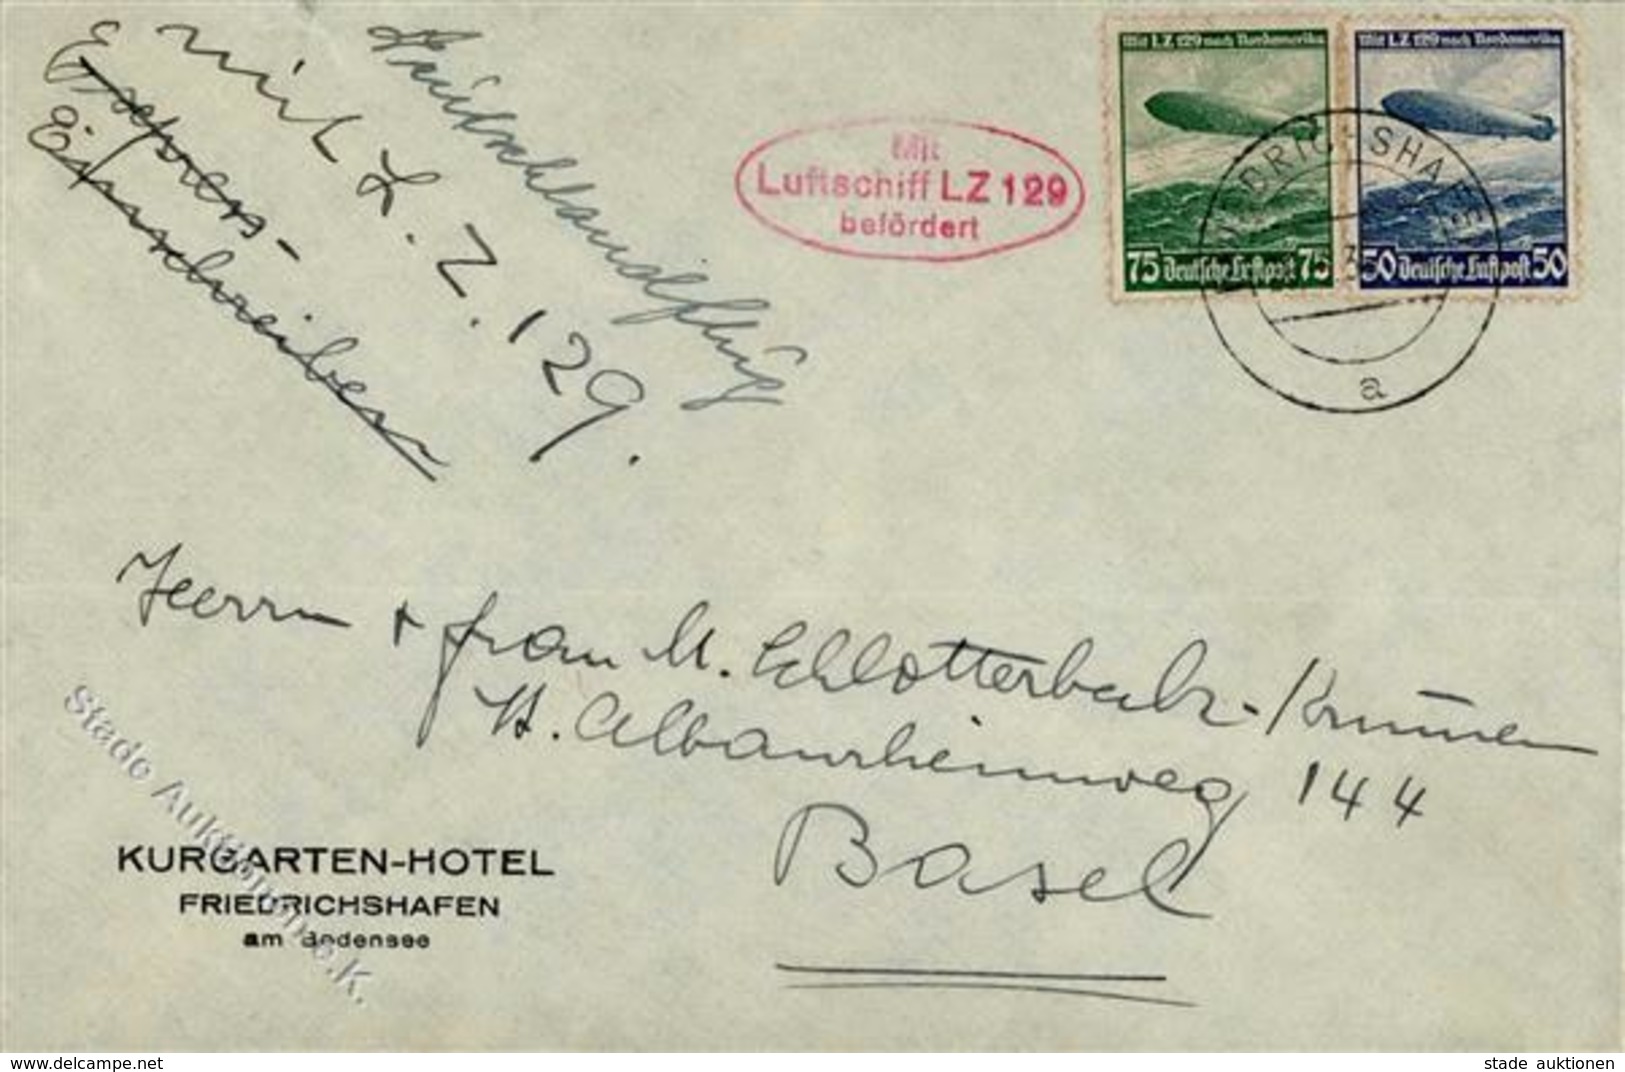 Express-
Einschreiben
mit L.Z.129.
Deutschlandflug
Mit
Luftschiff LZ 129
befördert
Mit LZ 129 nach Nordamerika
75 Deutsche Luftpost 75
Mit LZ 129 nach Nordamerika
50 Deutsche Luftpost 50
FRIEDRICHSHAFEN
a
Herrn + Frau M. Schlotterbeck-
St. Albanrheinweg 144
Basel
KURGARTEN-HOTEL
FRIEDRICHSHAFEN
am Bodensee
Stade Auktionen e.K.
www.delcampe.net
stade auktionen